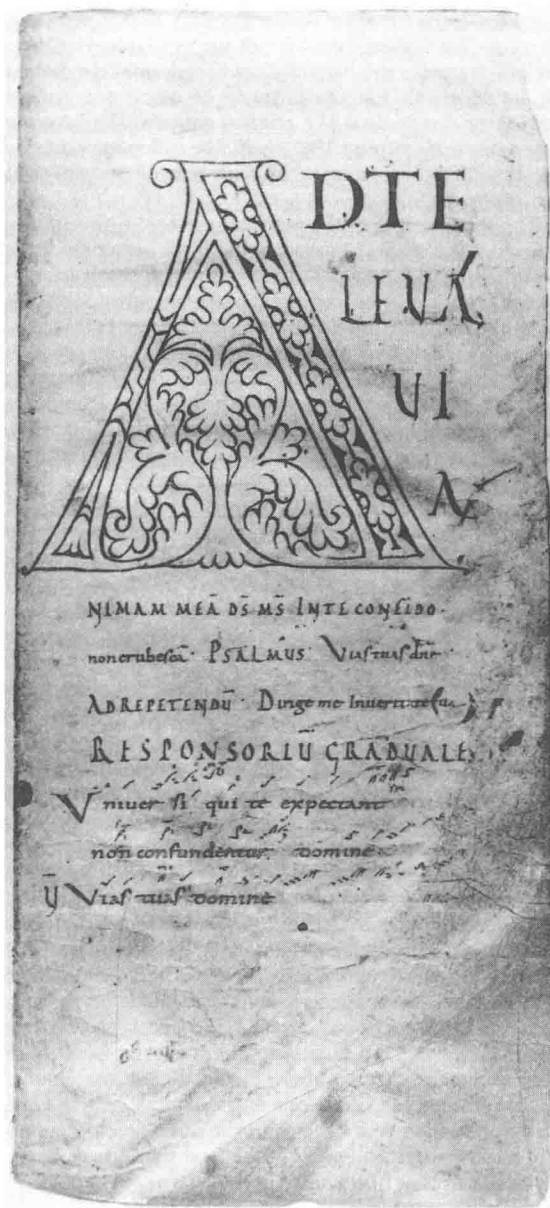 AD TE
LEVA
VI
A
NIMAM MEĀ DS̄ MS̄ IN TE CONFIDO·
non erubescā· PSALMUS Vias tuas dn̄e
AD REPETENDŪ· Dirige me In veritate tua
RESPONSORIŪ GRADUALE
Vniuersi qui te expectant
non confundentur domine
V̄ Vias tuas domine